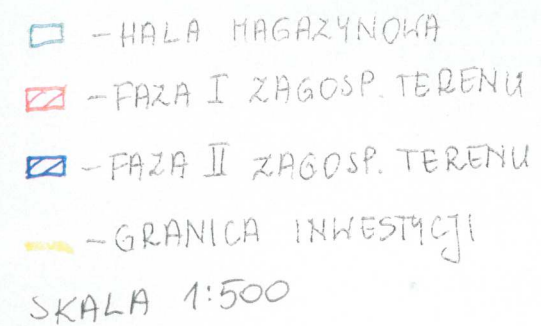 - HALA MAGAZYNOWA
- FAZA I ZAGOSP. TERENU
- FAZA II ZAGOSP. TERENU
- GRANICA INWESTYCJI
SKALA 1:500